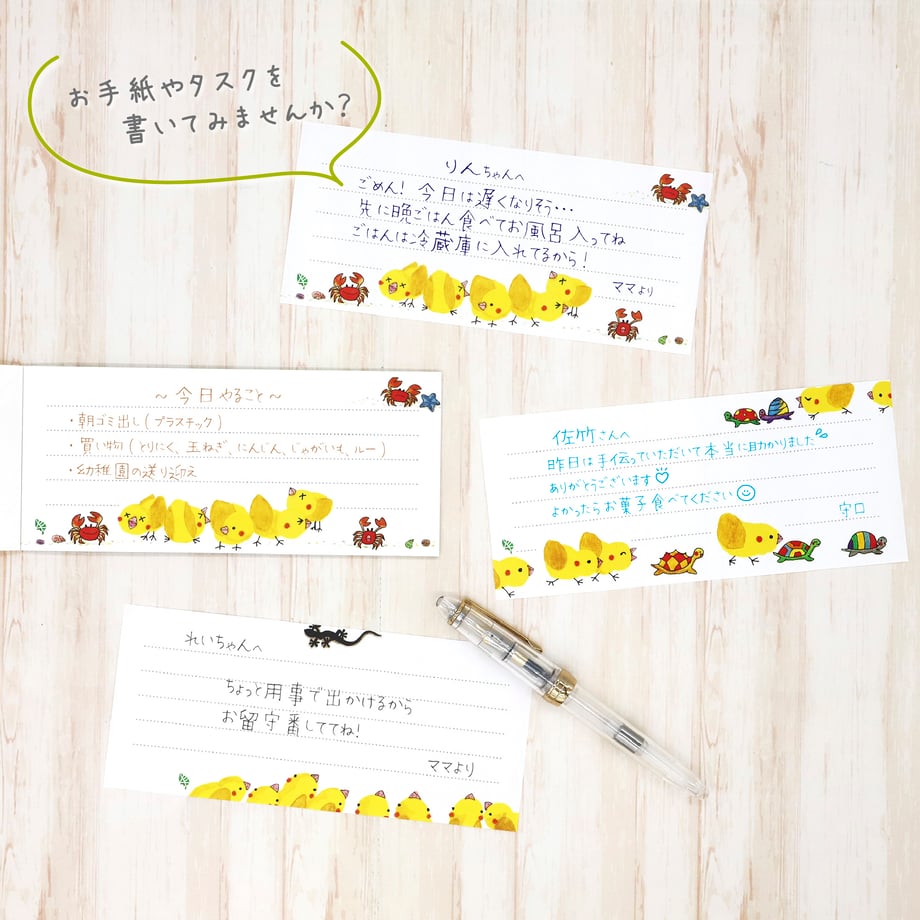 お手紙やタスクを
書いてみませんか?
りんちゃんへ
ごめん！今日は遅くなりそう・・・
先に晩ごはん食べてお風呂入ってね
ごはんは冷蔵庫に入れてるから！
ママより
～今日やること～
・朝ゴミ出し(プラスチック)
・買い物(とりにく、玉ねぎ、にんじん、じゃがいも、ルー)
・幼稚園の送り迎え
佐竹さんへ
昨日は手伝っていただいて本当に助かりました
ありがとうございます♡
よかったらお菓子食べてください☺
守口
れいちゃんへ
ちょっと用事で出かけるから
お留守番しててね!
ママより